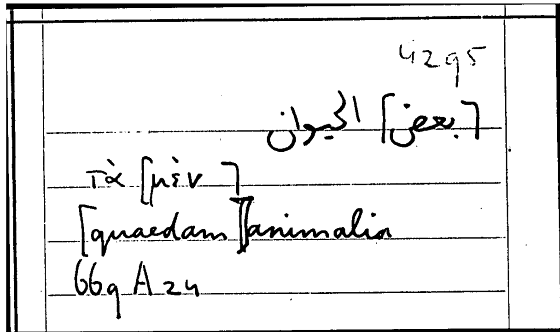 4295
[بعض] الحيوان
τὰ [μὲν]
[quaedam] animalia
669 A 24